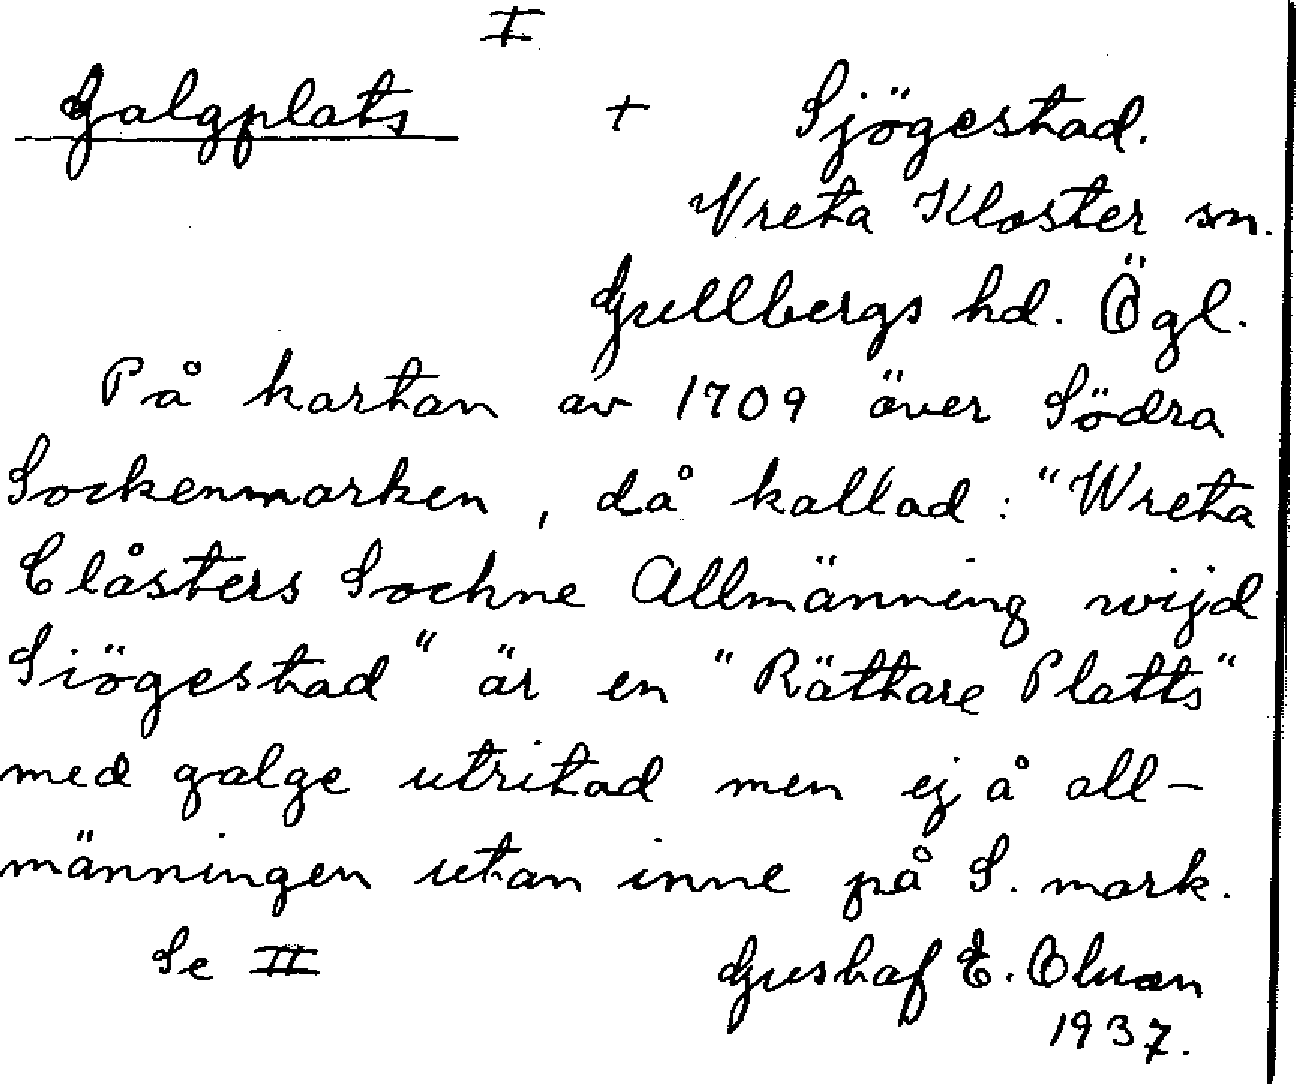 I
Galgplats + Sjögestad.
Vreta Kloster sn.
Gullbergs hd. Ögl.
På kartan av 1709 över Södra
Sockenmarken, då kallad: "Wreta
Clåsters Sochne Allmänning wijd
Siögestad" är en "Rättare Platts"
med galge utritad men ej å all-
männingen utan inne på S. mark.
Se II Gustaf E.
1937.